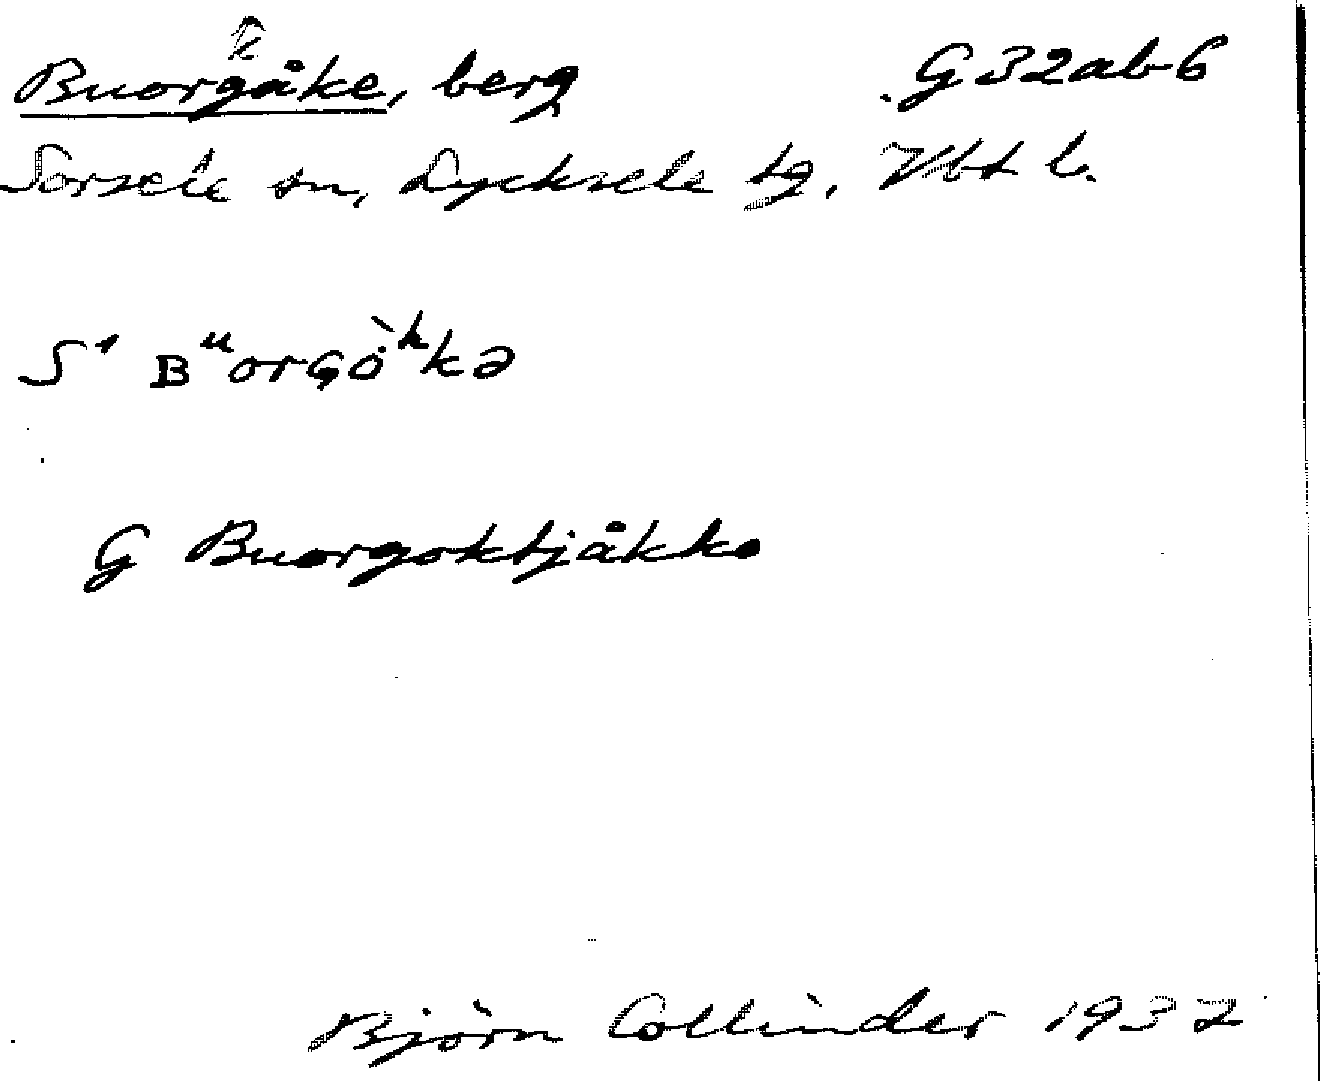 k
Buorgåke, berg G32ab6
Sorsele sn, Lycksele tg, Vbt l.
S¹ Bᵘorɢò̀ʰkə
G Buorgoktjåkko
Björn Collinder 1937